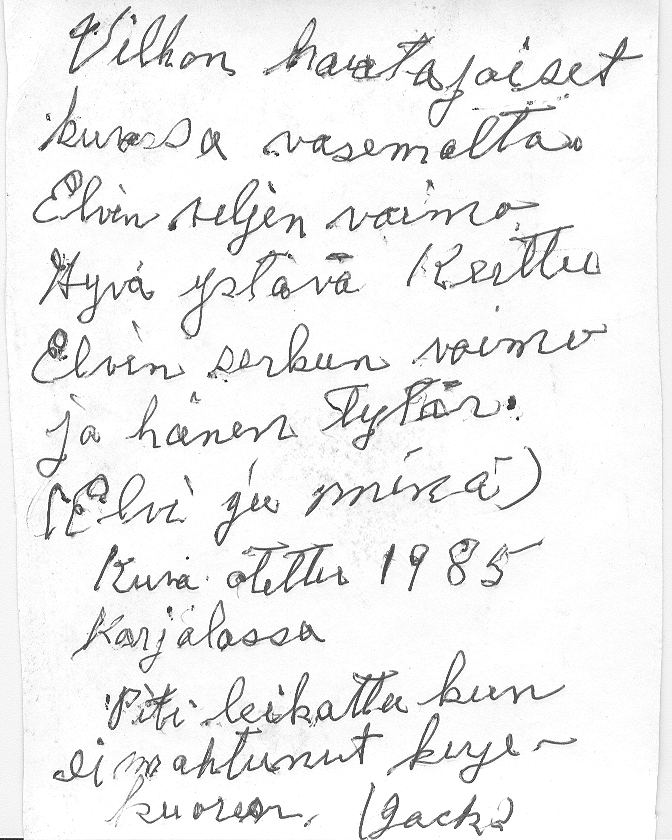 Vilhon hautajaiset
kuvassa vasemalta.
Elvin veljen vaimo
Hyvä ystävä Kerttu
Elvin serkun vaimo
ja hänen tytär.
(Elvi ja minä)
Kuva otettu 1985
Karjalassa
Piti leikattu kun
ei mahtunut kirje-
kuoren. (Jack